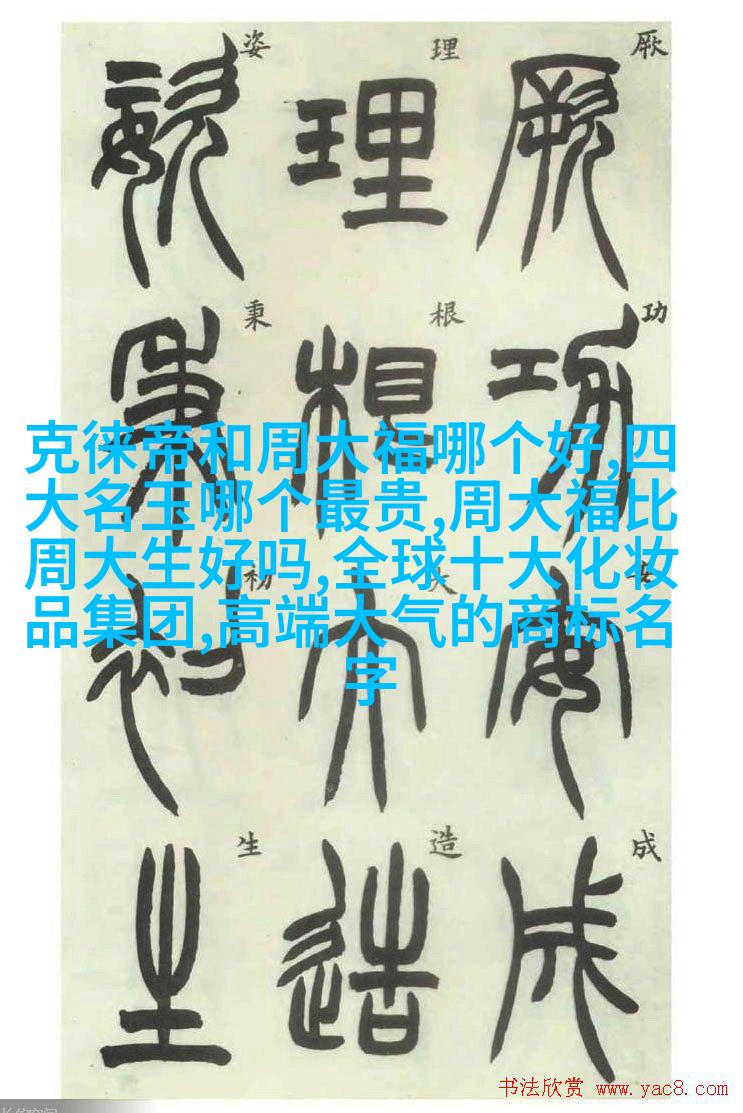 厥功安成
厥功安成
理根大造
理根大造
姿秉初生
姿秉初生
克徕帝和周大福哪个好,四
大名玉哪个最贵,周大福比
周大生好吗,全球十大化妆
品集团,高端大气的商标名
字
书法欣赏 www.yac8.com